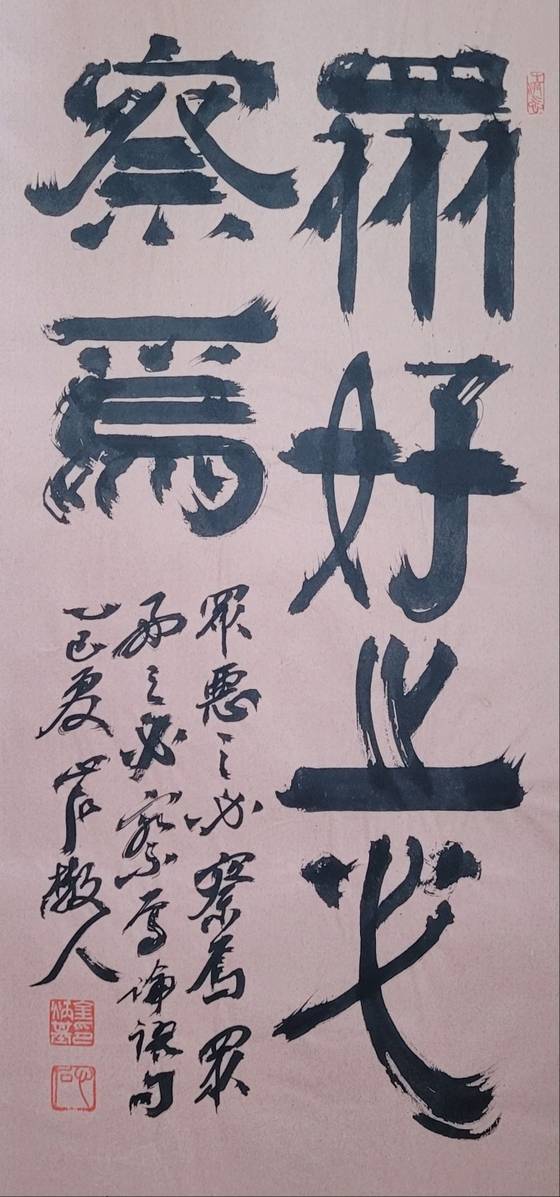 眾好之必
察焉
眾惡之必察焉眾
好之必察焉論語句
乙巳夏 散人